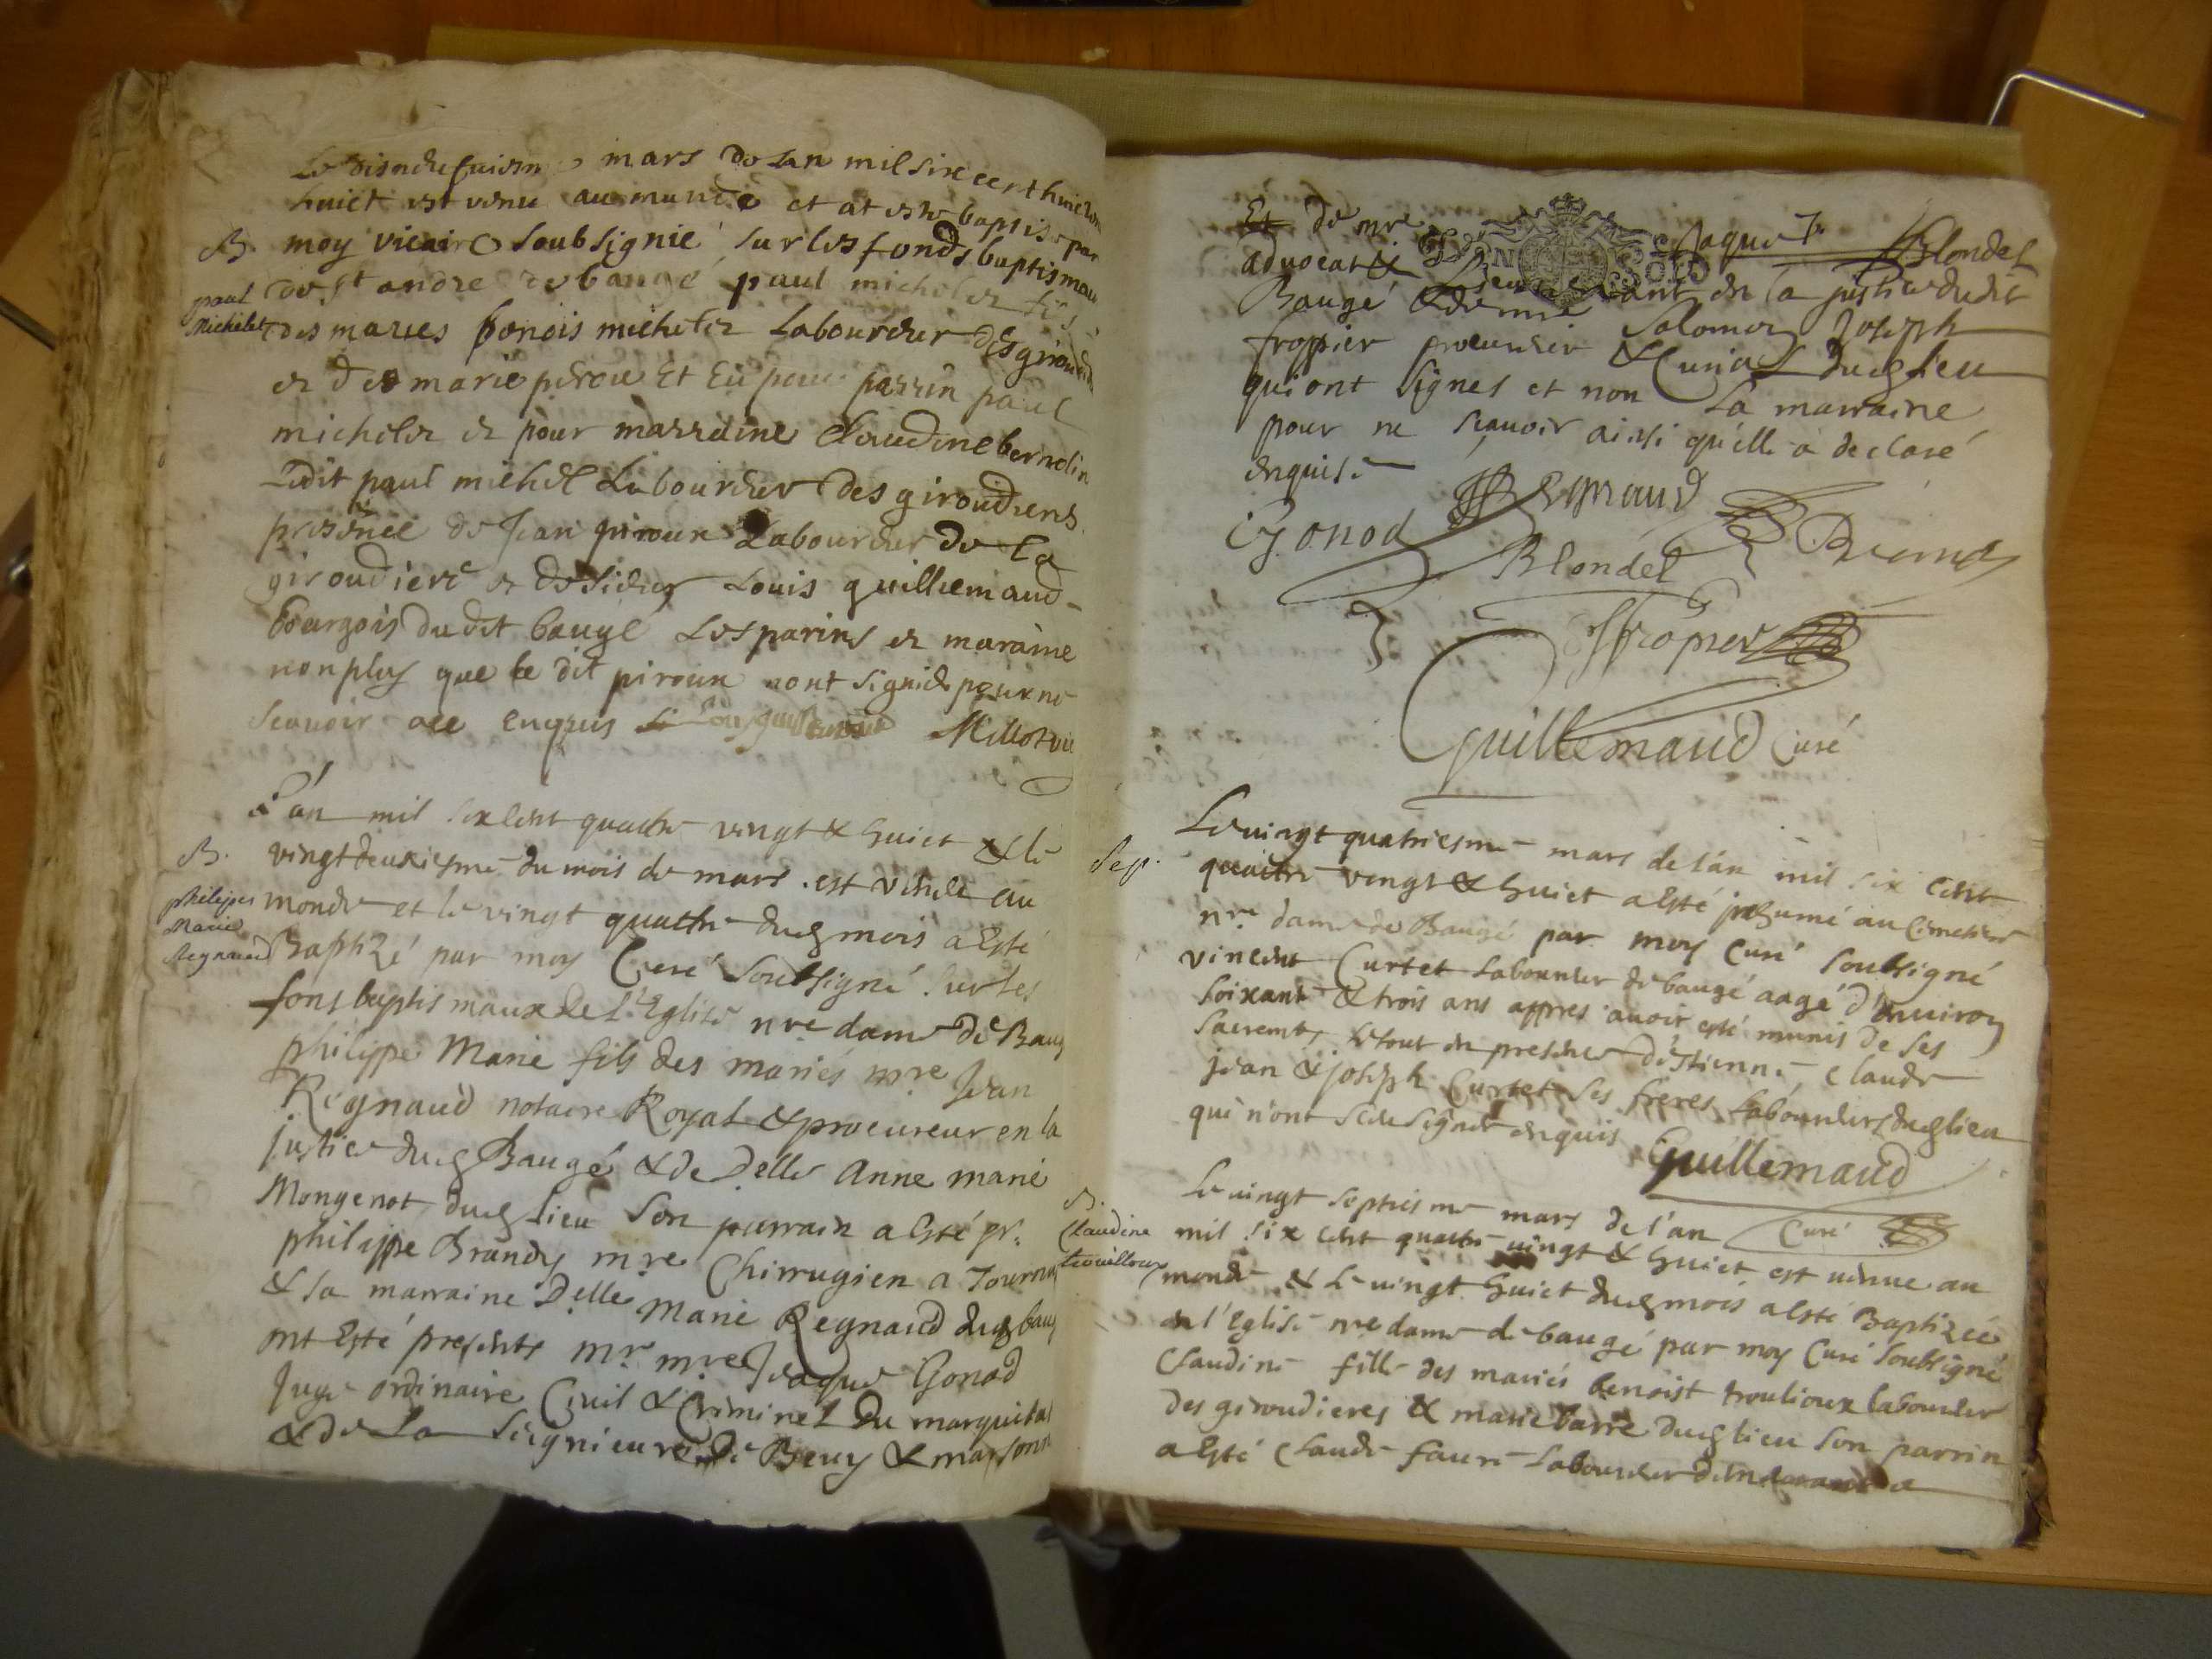 mars de lan mil six cent huictan
huict est venu au munde et at este baptisé par
B. moy vicaire soubsignié sur les fonds baptismau
paul Michelet
de st andre de baugé paul michelet fis
des maries benois michelet Laboureur des giroudi
et de marie pirou Et Eu pour parrin paul
michelet et pour marraine Claudine bernolin
Ledit paul michel Laboureur des giroudieres
presence de Jean piroux Laboureur de la
giroudiere et de Louis guilliemaud
bourgois dudit baugé Les parins et maraine
non plus que le dit piroux nont signié pour ne
scauoir ace enquis Millot vic
L'an mil six cent quattre vingt & huict & le
B. vingt deuxiesme du mois de mars est venu au
philippes Marie Regnaud
monde et le vingt quattre dud mois a esté
Baptizé par moy Curé soubsigné sur les
fons baptismaux de l'Eglise nre dame de Baug
philippe Marie fils des mariés mre Jean
Regnaud notaire Royal & procureur en la
justice dud Baugé & de Delle Anne marie
Mongenot dud lieu son parrain a esté sr.
philippe Brandy mre Chirrugien a Tournu
& la marraine Delle Marie Regnaud dud baug
ont esté presents mr. mre Jacques Gonod
Juge ordinaire Ciuil & Criminel du marquisa
& de La Seignieurie de Beuy & marsonn
Et de mre Jaques Blondel
aduocat & en la justice dudit
Baugé & de mre Salomon Joseph
froppier procureur & Curial dud lieu
qui ont signes et non La marraine
pour ne scauoir ainsi qu'elle a declaré
enquise
Regnaud
Gonod
Blondel
ffropier
Guillemaud Curé
Le vingt quatriesme mars de l'an mil six cent
Sep. quattre vingt & huict a esté inhumé au Cimetiere
nre dame de Baugé par moy Curé soubsigné
vincent Curtet Laboureur de baugé aagé d'enuiron
soixante & trois ans appres auoir esté munis de ses
sacremts, le tout en presence d'estienne, Claude
jean & joseph Curtet ses freres Laboureurs dud lieu
qui n'ont sceu signer enquis Guillemaud
Curé
B. Le vingt septiesme mars de l'an
Claudine trouilloux
mil six cent quattre vingt & huict est venue au
monde & le vingt huict dud mois a esté Baptizée
en l'Eglise nre dame de baugé par moy Curé soubsigné
Claudine fille des mariés benoist troulioux laboureur
des giroudieres & marie barre dud lieu son parrin
a esté Claude faure Laboureur